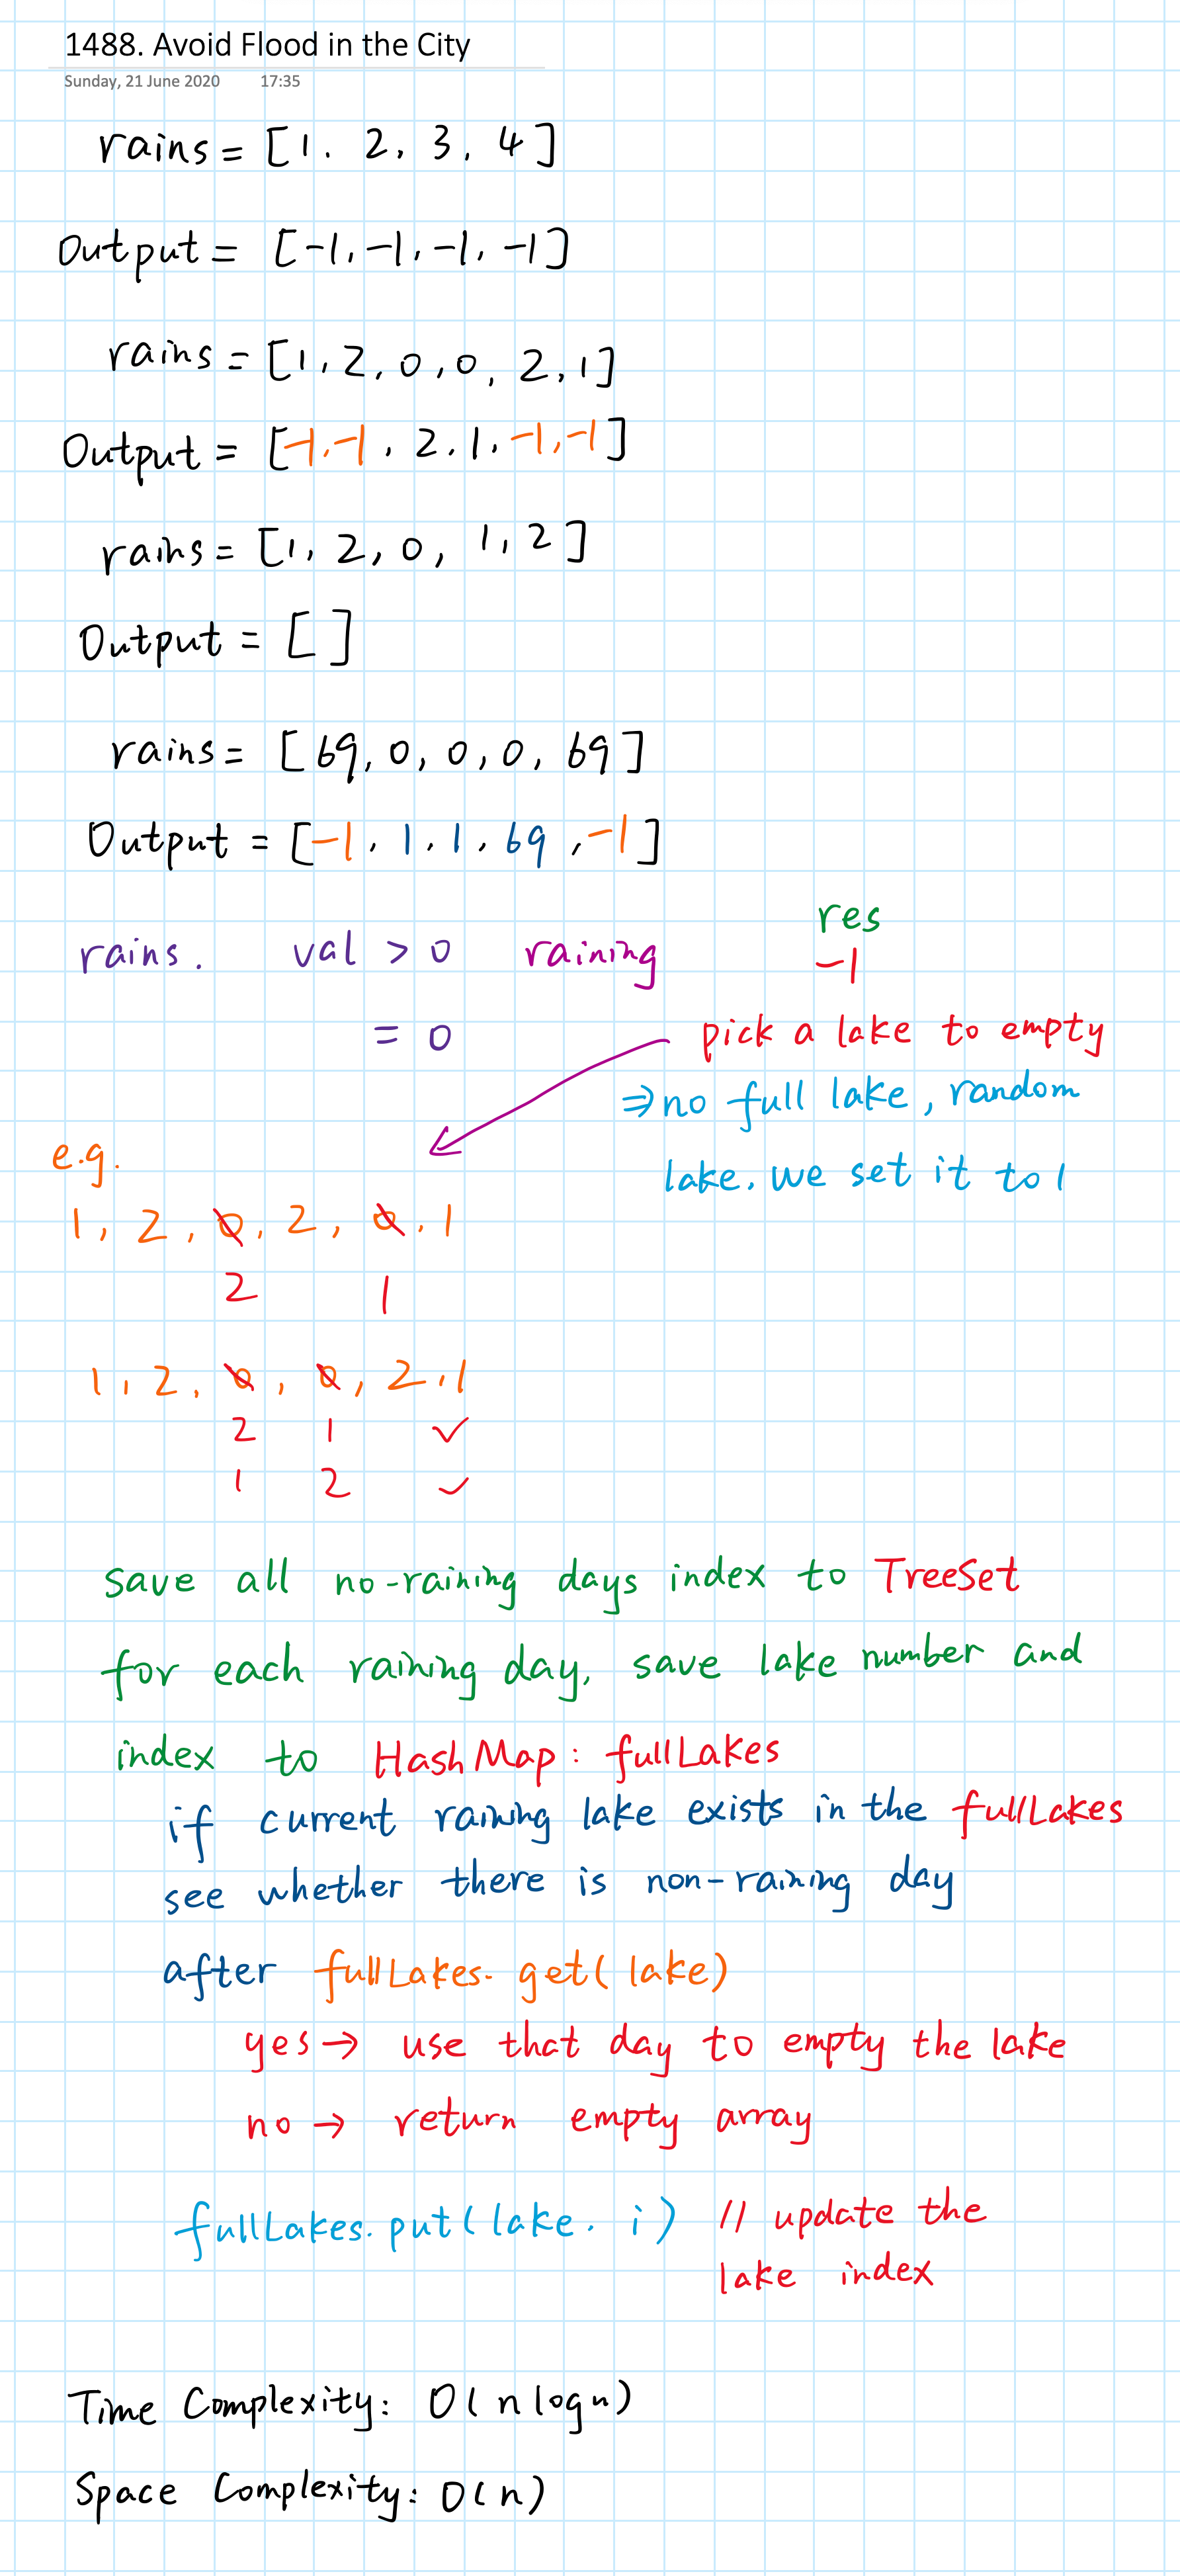 1488. Avoid Flood in the City
Sunday, 21 June 2020 17:35
rains = [1, 2, 3, 4]
Output = [-1, -1, -1, -1]
rains = [1, 2, 0, 0, 2, 1]
Output = [-1, -1, 2, 1, -1, -1]
rains = [1, 2, 0, 1, 2]
Output = []
rains = [69, 0, 0, 0, 69]
Output = [-1, 1, 1, 69, -1]
res
rains. val > 0 raining -1
= 0 pick a lake to empty
⇒ no full lake, random
lake, we set it to 1
e.g.
1, 2, 0, 2, 0, 1
2 1
1, 2, 0, 0, 2, 1
2 1 ✓
1 2 ✓
save all no-raining days index to TreeSet
for each raining day, save lake number and
index to HashMap: fullLakes
if current raining lake exists in the fullLakes
see whether there is non-raining day
after fullLakes.get(lake)
yes → use that day to empty the lake
no → return empty array
fullLakes.put(lake, i) // update the
lake index
Time Complexity: O(nlogn)
Space Complexity: O(n)